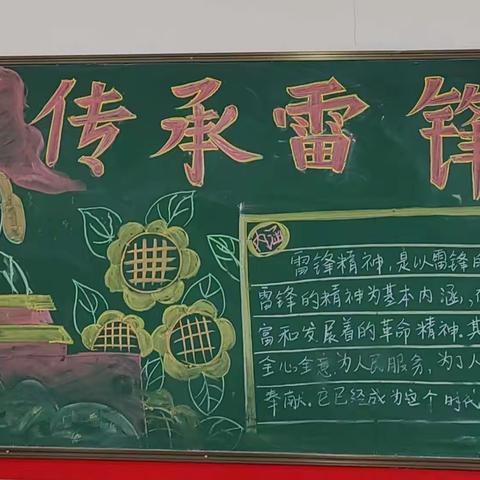 传承雷锋
内涵
雷锋精神,是以雷锋的
雷锋的精神为基本内涵,在
富和发展着的革命精神.其
全心全意为人民服务,为了人
奉献.它已经成为这个时代